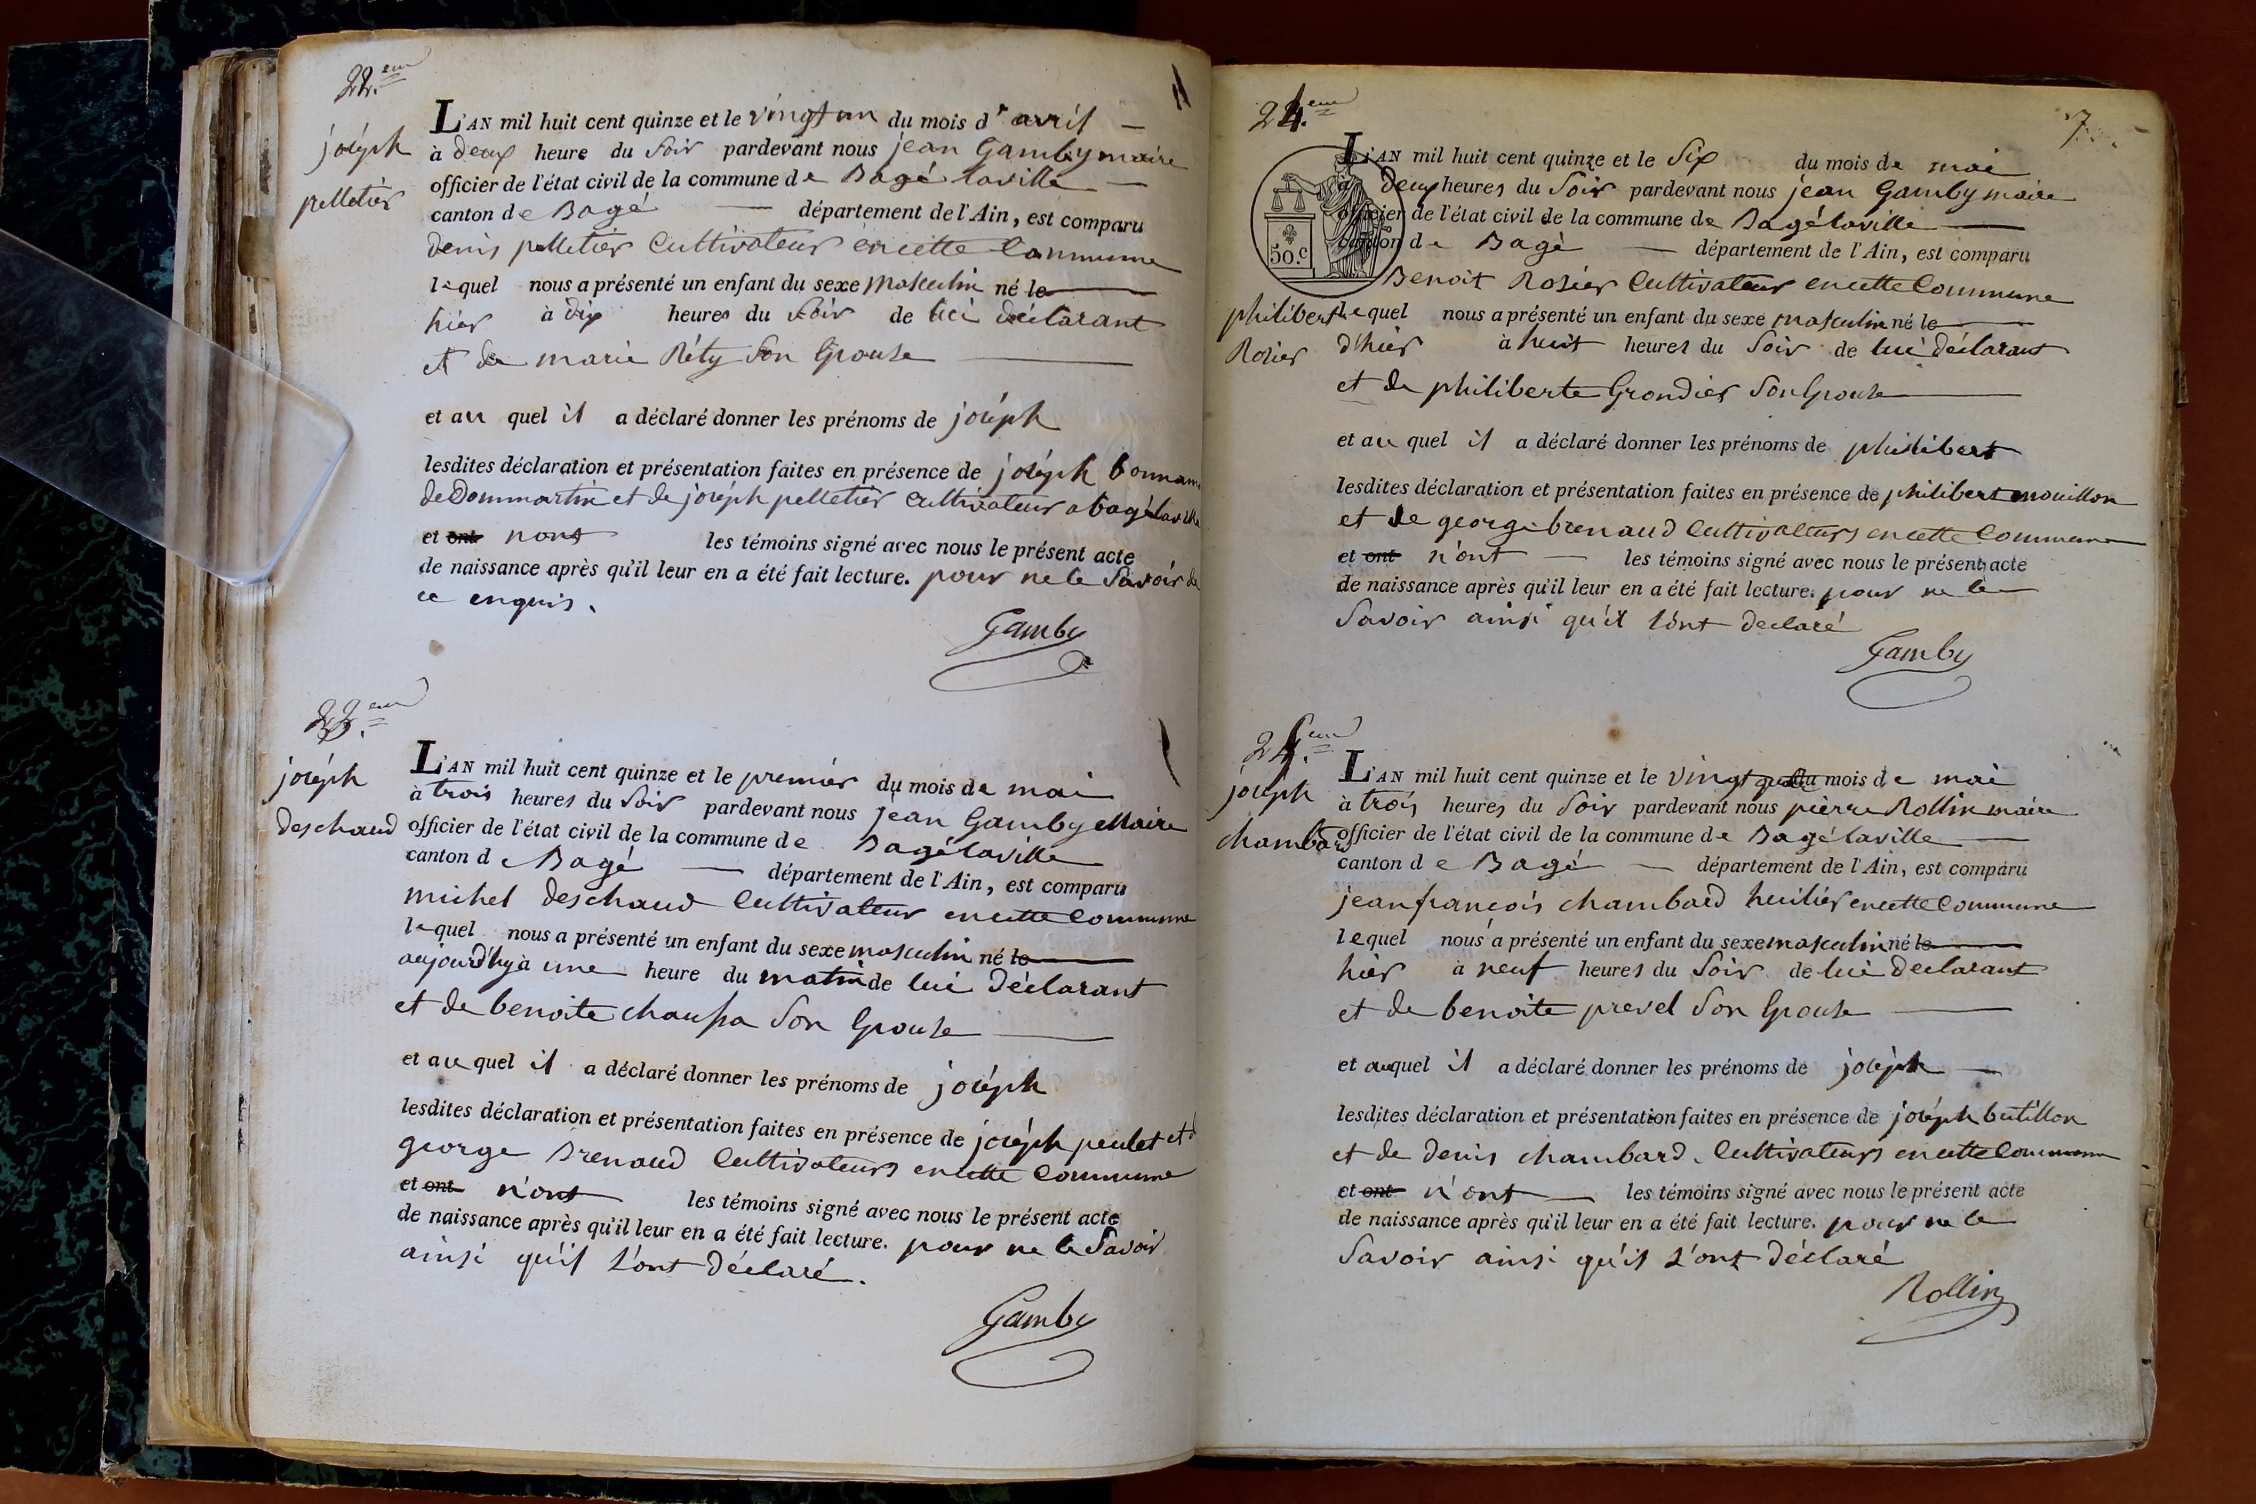 22.em
joséph
pelletiér
L'AN mil huit cent quinze et le vingt un du mois d' avril
à deux heure du soir pardevant nous jean Gamby maire
officier de l'état civil de la commune de Bagé laville
canton de Bagé département de l'Ain, est comparu
denis pelletiér Cultivateur en cette Commune
lequel nous a présenté un enfant du sexe masculin né le
hiér à dix heures du soir de lui déclarant
et de marie Réty son Epouse
et au quel il a déclaré donner les prénoms de joséph
lesdites déclaration et présentation faites en présence de joséph bonnam
de Dommartin et de joséph pelletiér Cultivateur a bagé laville
et ont nont les témoins signé avec nous le présent acte
de naissance après qu'il leur en a été fait lecture. pour ne le savoir de
ce enquis.
Gamby
23.em
joséph
deschaud
L'AN mil huit cent quinze et le premiér du mois de mai
à trois heures du soir pardevant nous jean Gamby Maire
officier de l'état civil de la commune de Bagé laville
canton de Bagé département de l'Ain, est comparu
michel deschaud Cultivateur en cette Commune
lequel nous a présenté un enfant du sexe masculin né le
aujourd'hy à une heure du matin de lui déclarant
et de benoite chaussa son Epouse
et au quel il a déclaré donner les prénoms de joséph
lesdites déclaration et présentation faites en présence de joséph peulet et d
george Brenaud Cultivateurs en cette Commune
et ont n'ont les témoins signé avec nous le présent acte
de naissance après qu'il leur en a été fait lecture. pour ne le savoir
ainsi qu'il l'ont déclaré.
Gamby
24.em
7
50.c
philibert
Rosier
L'AN mil huit cent quinze et le six du mois de mai
à deux heures du soir pardevant nous jean Gamby maire
officier de l'état civil de la commune de Bagé laville
canton de Bagé département de l'Ain, est comparu
Benoit Rosiér Cultivateur en cette Commune
lequel nous a présenté un enfant du sexe masculin né le
d'hiér à huit heures du soir de lui déclarant
et de philiberte Grondiér son Epouse
et au quel il a déclaré donner les prénoms de philibert
lesdites déclaration et présentation faites en présence de philibert mouillon
et de george brenaud Cultivateurs en cette Commune
et ont n'ont les témoins signé avec nous le présent acte
de naissance après qu'il leur en a été fait lecture. pour ne le
savoir ainsi qu'il l'ont declaré
Gamby
joséph
chambard
L'AN mil huit cent quinze et le vingt quatre du mois de mai
à trois heures du soir pardevant nous piérre Rollin maire
officier de l'état civil de la commune de Bagé laville
canton de Bagé département de l'Ain, est comparu
jean francois chambard huiliér en cette Commune
lequel nous a présenté un enfant du sexe masculin né le
hiér à neuf heures du soir de lui declarant
et de benoite prevel son Epouse
et auquel il a déclaré donner les prénoms de joséph
lesdites déclaration et présentation faites en présence de joséph butillon
et de denis chambard. Cultivateurs en cette Commune
et ont n'ont les témoins signé avec nous le présent acte
de naissance après qu'il leur en a été fait lecture. pour ne le
savoir ainsi qu'il l'ont déclaré
Rollin